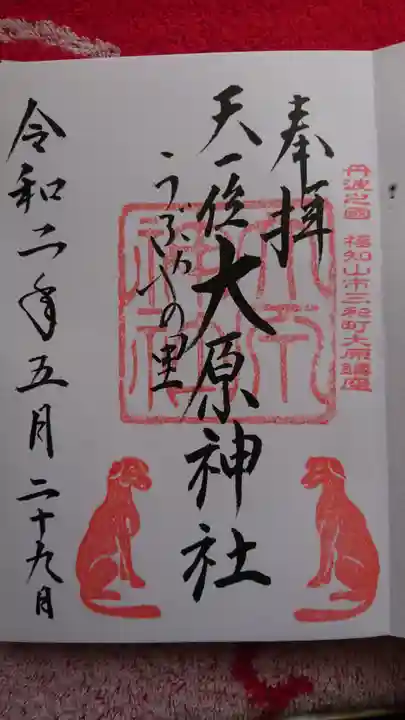 丹波之國 福知山市三和町大原鎮座
奉拝
天一位大原神社
うぶやの里
令和二年五月二十九日
大原神社